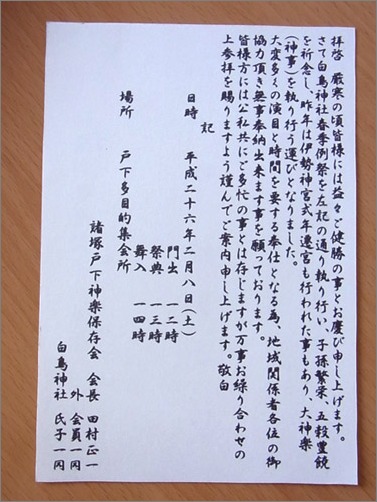 拝啓　厳寒の頃皆様には益々ご健勝の事とお慶び申し上げます。
さて白鳥神社春季例祭を左記の通り執り行い、子孫繁栄、五穀豊饒
を祈念し、昨年は伊勢神宮式年遷宮も行われた事もあり、大神楽
(神事)を執り行う運びとなりました。
大変多くの演目と時間を要する奉仕となる為、地域関係者各位の御
協力頂き無事奉納出来ます事を願っております。
皆様方には公私共にご多忙の事とは存じますが万事お繰り合わせの
上参拝を賜りますよう謹んでご案内申し上げます。敬白
記
日時　平成二十六年二月八日(土)
門出　一二時
祭典　一三時
舞入　一四時
場所　戸下多目的集会所
諸塚戸下神楽保存会　会長　田村正一
外　会員一同
白鳥神社　氏子一同